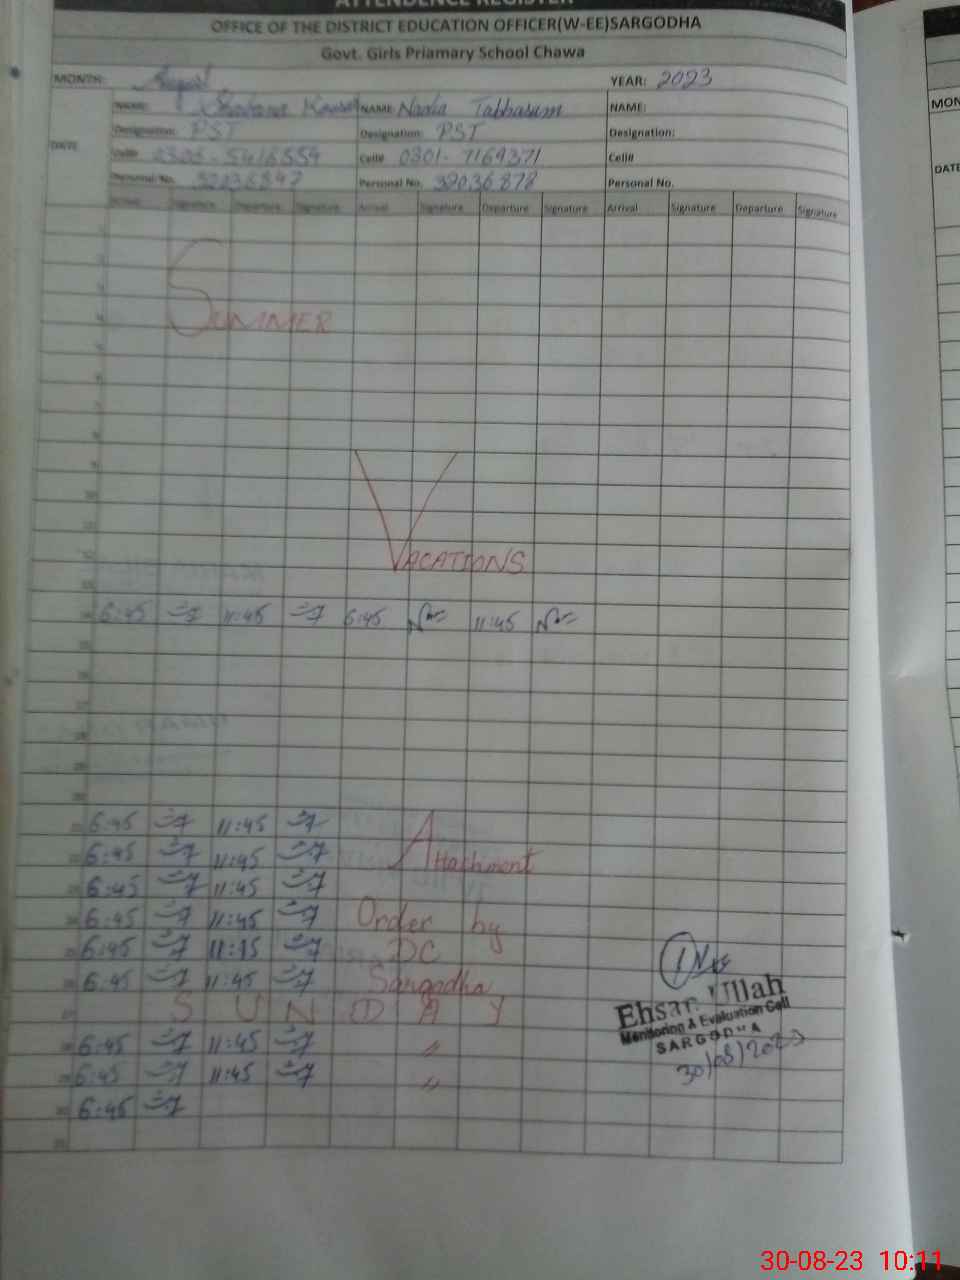 ATTENDENCE REGISTER
OFFICE OF THE DISTRICT EDUCATION OFFICER(W-EE)SARGODHA
Govt. Girls Priamary School Chawa
MONTH: August YEAR: 2023
DATE
NAME: Shabana Kausar NAME: Nadia Tabbasum NAME:
Designation: PST Designation: PST Designation:
Cell# Cell# 0301-7169371 Cell#
Personal No. Personal No. 32036878 Personal No.
Arrival Signature Departure Signature Arrival Signature Departure Signature Arrival Signature Departure Signature
SUMMER
VACATIONS
14 6:45 11:45 6:45 11:45
21 6:45 11:45
22 6:45 11:45 Attachment
23 6:45 11:45
24 6:45 11:45 Order by
25 6:45 11:45 DC
26 6:45 11:45 Sargodha
27 SUNDAY
28 6:45 11:45 "
29 6:45 11:45 "
30 6:45
31
Ehsan Ullah
Monitoring & Evaluation Cell
SARGODHA
30/08/2023
MON
DATE
30-08-23 10:11